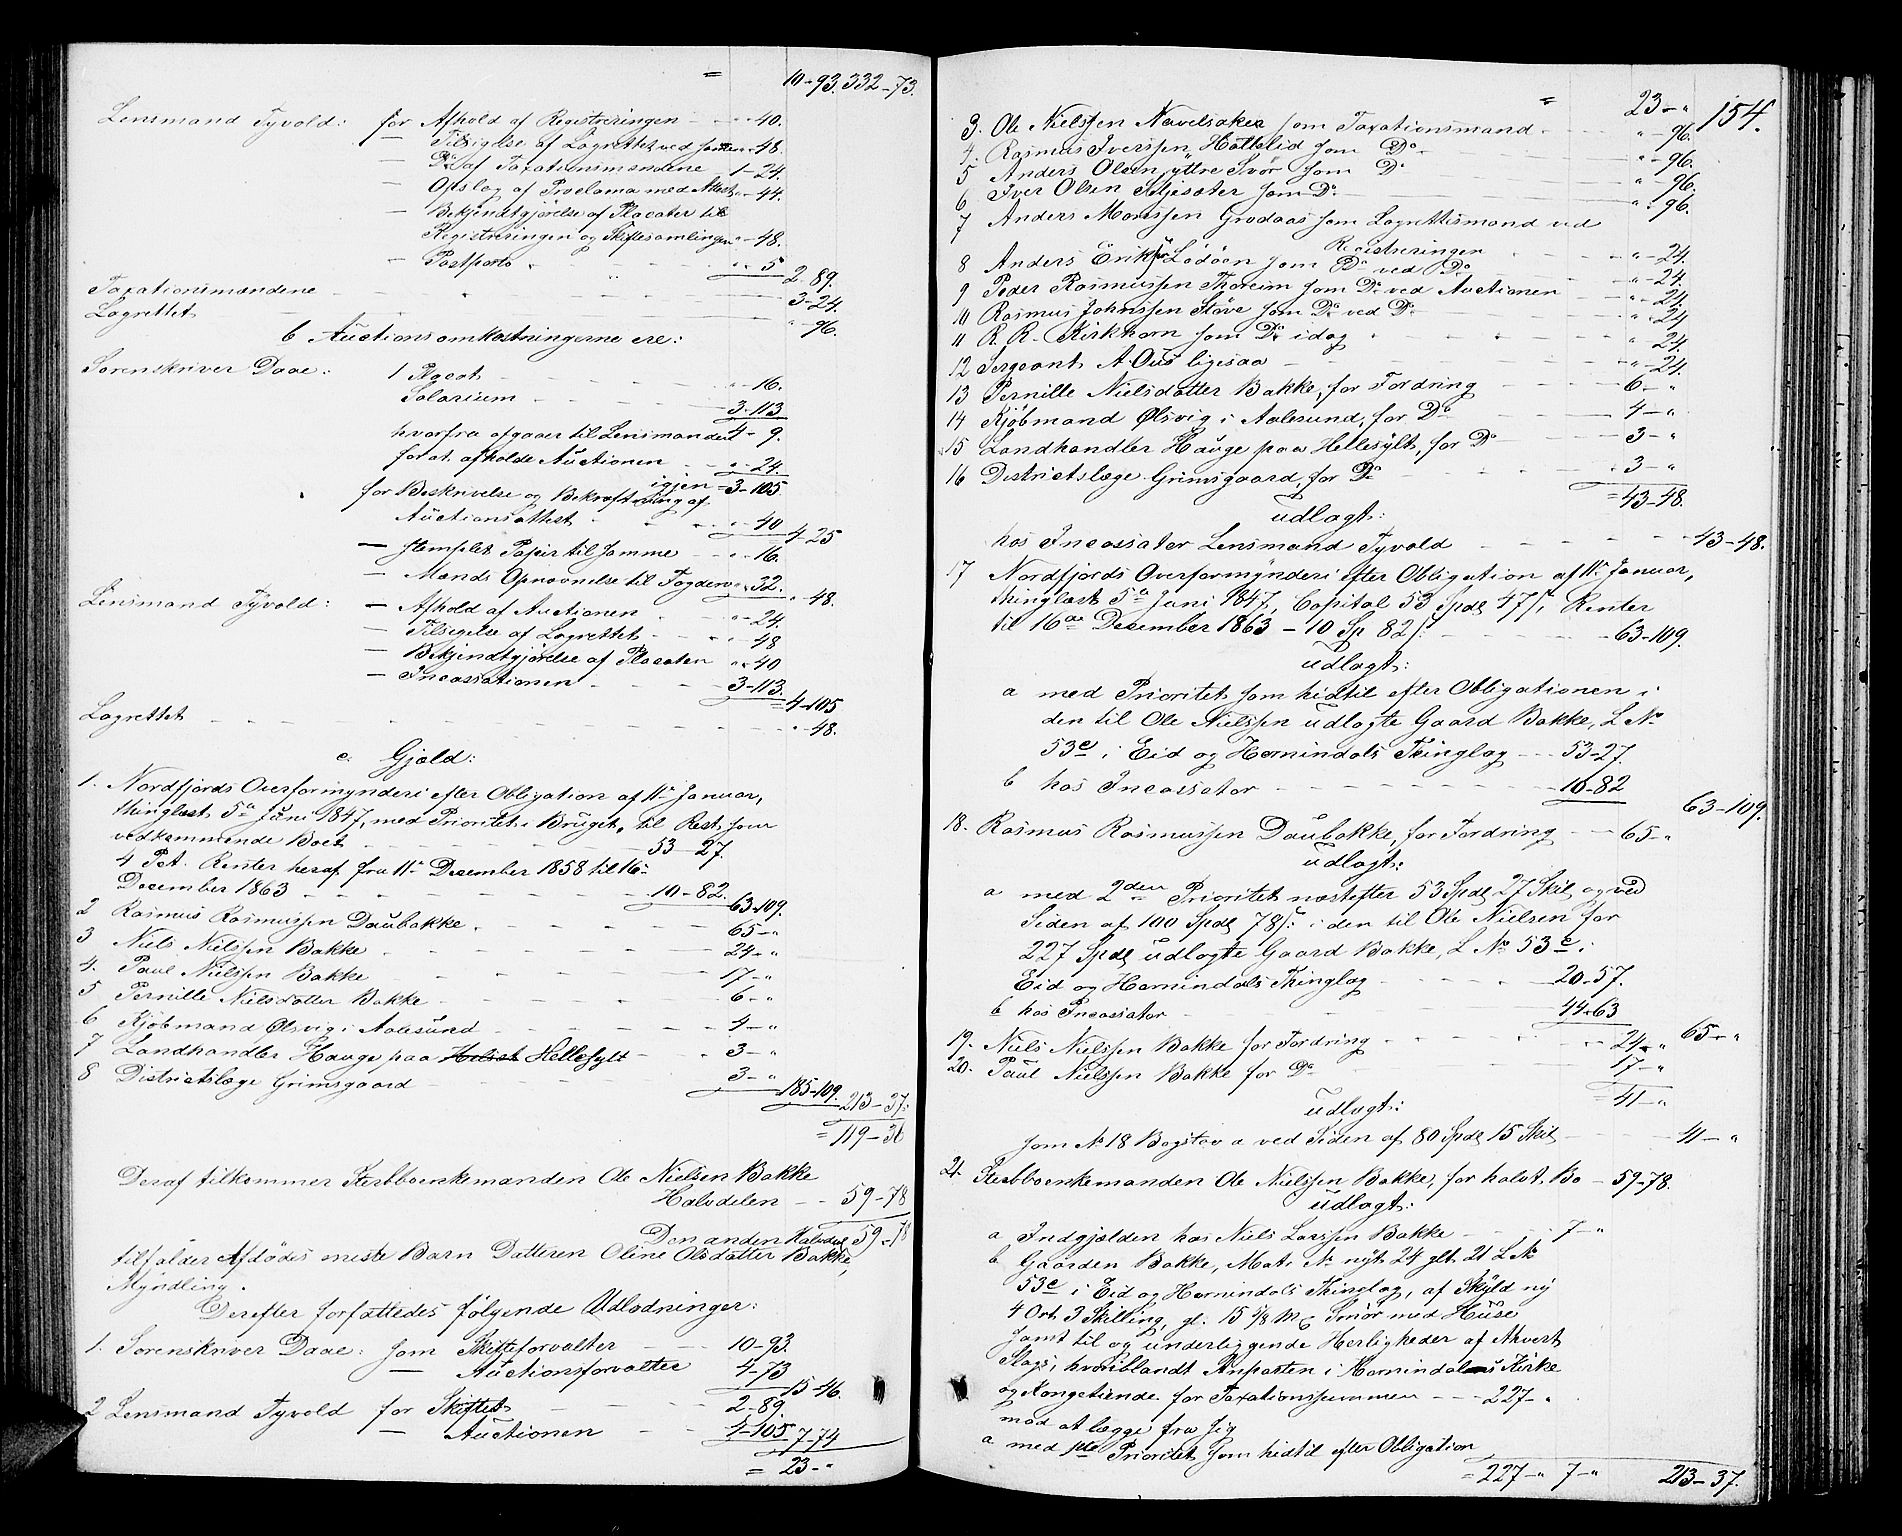 = 10-93. 332-73.
Lensmand Tyvold: for Afhold af Registreringen - - „-40.
— Tilsigelse af Lagrettet ved samme „-48.
— Do af Taxationsmændene 1-24.
— Opslag af Proclama med Attest „-44.
— Bekjendtgjørelse af Placater til
Registreringen og Skiftesamlingen „-48.
— Postporto - - „-5
2-89.
Taxationsmændene - - - 3-24.
Lagrettet - - - „-96.
b Auctionsomkostningerne ere:
Sorenskriver Daae: 1 Placat - - - „-16.
Salarium - - - 3-113
hvorfra afgaaer til Lensmanden 4-9.
for at afholde Auctionen - „-24.
igjen = 3-105
for Beskrivelse og Bekræftning af
Auctionsattest - - „-40
4-25
— stemplet Papir til samme - - „-16.
— Mænds Opnævnelse til Fogden „-32.
„-48.
Lensmand Tyvold: — Afhold af Auctionen - - „-24.
— Tilsigelse af Lagrettet - - „-48
— Bekjendtgjørelse af Placaten „-40
— Incassationen - - - 3-113.
=4-105
Lagrettet - - - „-48.
c. Gjæld:
1. Nordfjords Overformynderi efter Obligation af 11te Januar,
thinglæst 5te Juni 1847, med Prioritet i Bruget, til Rest som
vedkommende Boet - - - 53-27.
4 Pct. Renter heraf fra 11te December 1858 til 16de
December 1863 - - - 10-82.
63-109.
2 Rasmus Rasmussen Daubakke - - - 65-„
3 Niels Nielssen Bakke - - - 24-„
4. Paul Nielssen Bakke - - - 17-„
5 Pernille Nielsdatter Bakke - - - 6-„
6 Kjøbmand Ølsvig i Aalesund - - - 4-„
7 Landhandler Hauge paa Hellesylt - - 3-„
8 Districtslæge Grimsgaard - - - 3-„
185-109.
213-37.
= 119-36
Deraf tilkommer Sterbboenkemanden Ole Nielsen Bakke
Halvdelen - - 59-78
Den anden Halvdeel 59-78
tilfalder Afdødes meste Barn Datteren Oline Olsdatter Bakke,
Myndling.
Derefter forfattedes følgende Udlodninger:
1. Sorenskriver Daae: som Skifteforvalter - - 10-93.
— Auctionsforvalter 4-73
15-46.
2 Lensmand Tyvold for Skiftet - - - 2-89
— Auctionen - - 4-105
7-74
= 23-„
154.
= 23-„
3. Ole Nielssen Navelsaker som Taxationsmand - - „-96.
4. Rasmus Iverssen Hattelid som Do - - „-96.
5 Anders Olsen yttre Svor som Do - - „-96.
6 Iver Olsen Seljesæter som Do - - „-96.
7 Anders Monssen Grodaas som Lagrettesmand ved
Registreringen - „-24.
8 Anders Erikssen Lødøen som Do ved Do - „-24.
9 Peder Rasmussen Thoreim som Do ved Auctionen - „-24.
10 Rasmus Johnssen Støve som Do ved Do - „-24
11 R. R. Kirkhorn som Do idag - - „-24.
12 Sergeant A. Ous ligesaa - - „-24.
13 Pernille Nielsdatter Bakke, for Fordring - - 6-„
14 Kjøbmand Ølsvig i Aalesund, for Do - - 4-„
15 Landhandler Hauge paa Hellesylt, for Do - - 3-„
16 Districtslæge Grimsgaard, for Do - - 3-„
=43-48.
udlagt:
hos Incassator Lensmand Tyvold - - - 43-48.
17 Nordfjords Overformynderi efter Obligation af 11te Januar,
thinglæst 5te Juni 1847, Capital 53 Spd 47 s, Renter
til 16de December 1863 - 10 Sp 82 s: - - - 63-109.
udlagt:
a med Prioritet som hidtil efter Obligationen i
den til Ole Nielssen udlagte Gaard Bakke, L No
53c i Eid og Hornindals Thinglag - - 53-27.
b hos Incassator - - - 10-82
63-109.
18. Rasmus Rasmussen Daubakke, for Fordring - - 65-„
udlagt:
a med 2den Prioritet næstefter 53 Spd 27 Skil og ved
Siden af 100 Spd 78 s: i den til Ole Nielsen for
227 Spd udlagte Gaard Bakke, L No 53c i
Eid og Hornindals Thinglag - - - 20-57.
b hos Incassator - - - 44-63
65-„
19. Niels Nielssen Bakke for Fordring - - - 24-„
20. Paul Nielssen Bakke for Do - - - 17-„
=41-„
udlagt:
som No 18 Bogstav a ved Siden af 80 Spd 15 Skil - - 41-„
21. Sterbboenkemanden Ole Nielssen Bakke, for halvt Bo - 59-78.
udlagt:
a Indgjælden hos Niels Larssen Bakke - - 7-„
b Gaarden Bakke, Matr. No nyt 24 glt. 21 L No
53c i Eid og Hornindals Thinglag, af Skyld ny
4 Ort 3 Skilling, gl. 15 4/8 Mk Smør med Huse
samt til og underliggende Herligheder af ethvert
Slags, hvoriblandt Anparten i Hornindals Kirke
og Kongetiende for Taxationssummen - - 227-„
mod at lægge fra sig
a med 1ste Prioritet som hidtil efter Obligation
= 227-„ 7-„ 213-37.